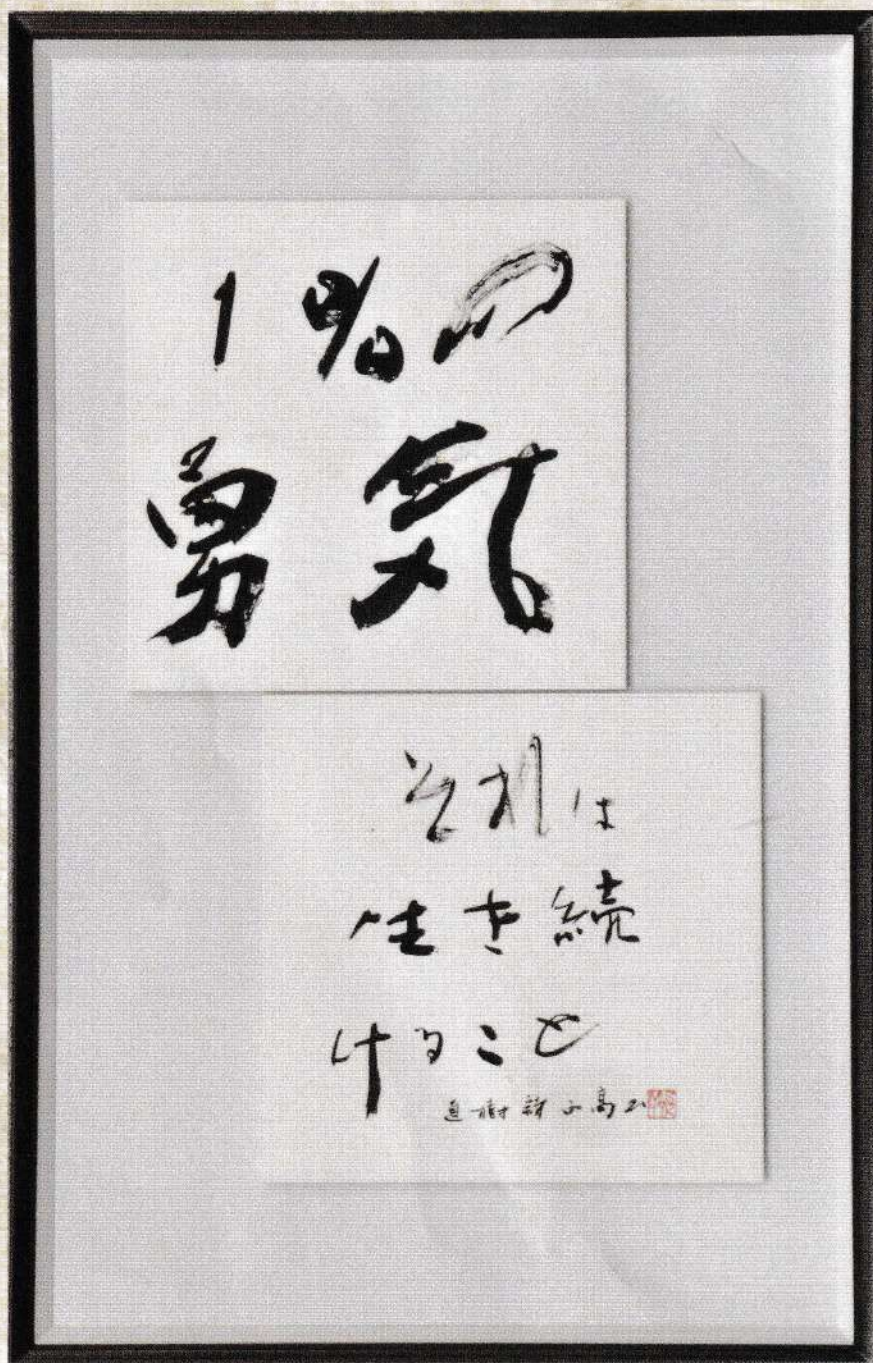 1%の
勇気
それは
生き続
けること